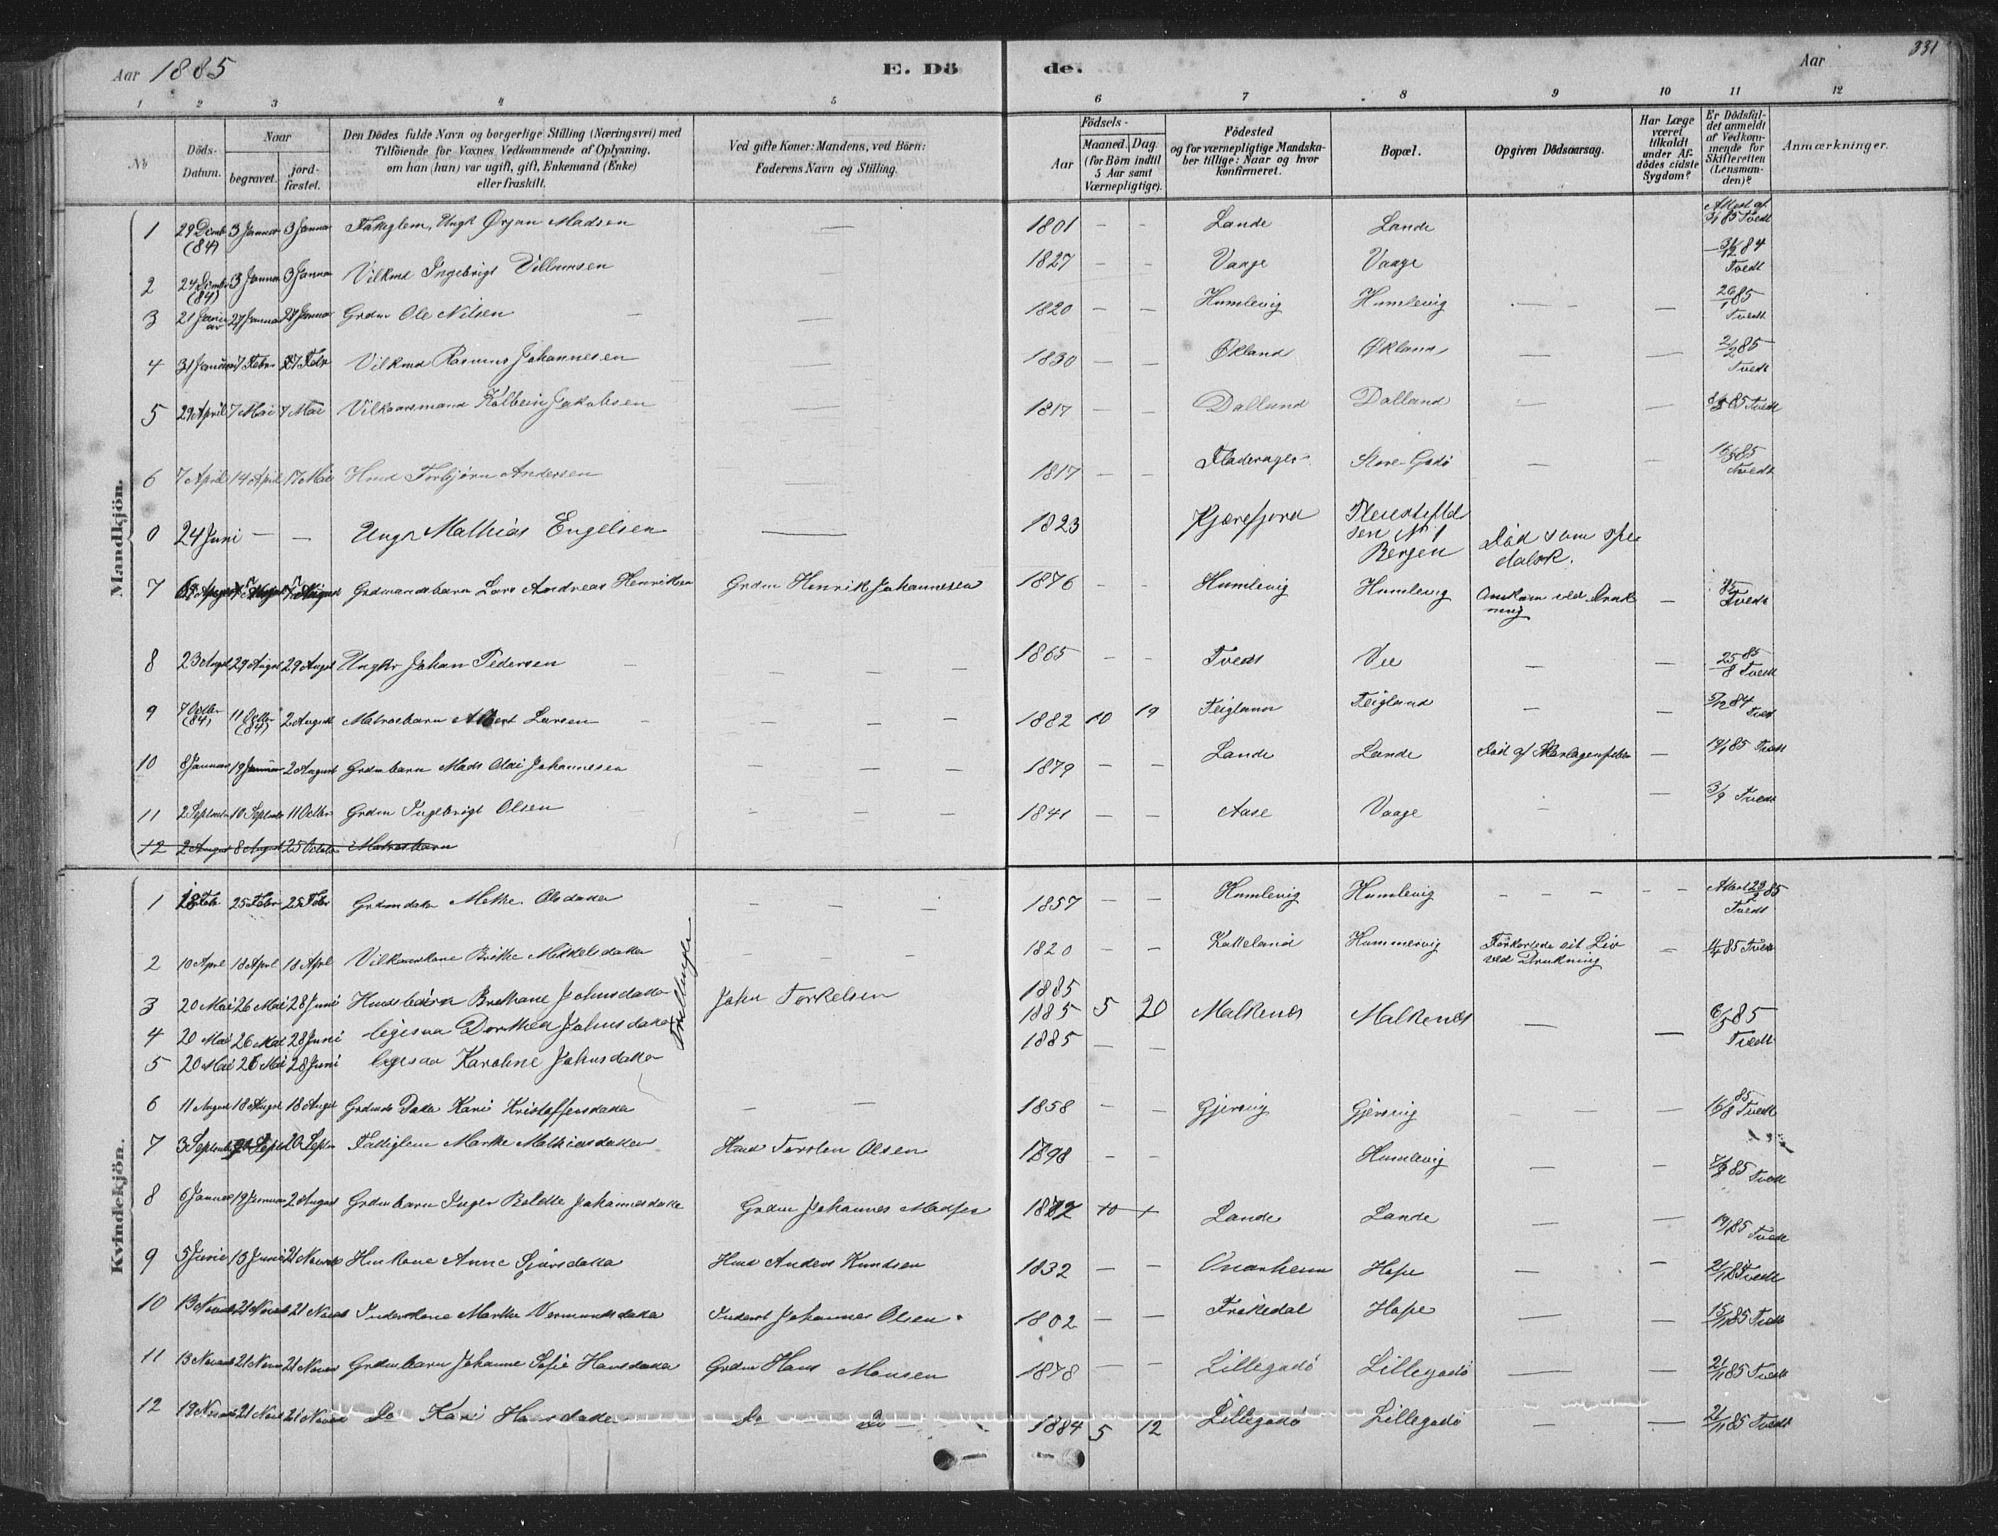 331
Aar 1885 E. Dö de. Aar
1 2 3 4 5 6 7 8 9 10 11 12
No
Döds-Datum.
Naar
begravet.
jord-fæstet.
Den Dödes fulde Navn og borgerlige Stilling (Næringsvei) med
Tilföiende for Voxnes Vedkommende af Oplysning,
om han (hun) var ugift, gift, Enkemand (Enke)
eller fraskilt.
Ved gifte Koner: Mandens, ved Börn:
Faderens Navn og Stilling.
Födsels-
Aar
Maaned. Dag.
(for Börn indtil
5 Aar samt
Værnepligtige).
Födested
og for værnepligtige Mandska-
ber tillige: Naar og hvor
konfirmeret.
Bopæl.
Opgiven Dödsaarsag.
Har Læge
været
tilkaldt
under Af-
dödes sidste
Sygdom?
Er Dödsfal-
det anmeldt
af Vedkom-
mende for
Skifteretten
(Lensman-
den)?
Anmærkninger.
Mandkjön.
1 29 Decmb (84) 3 Januar 3 Januar Fattiglem, Ungk Ørjan Madsen — 1801 – – Lande Lande Attest af 3/1 85 Tvedt
2 24 Decmb (84) 3 Januar 3 Januar Vilkmd Ingebrigt Villumsen — 1827 – – Vaage Vaage 31/12 84 Tvedt
3 21 Januar 27 Januar 27 Januar Grdm Ole Nilsen — 1820 – – Humlevig Humlevig — — 26/1 85 Tvedt
4 31 Januar 7 Febr 7 Febr Vilkmd Rasmus Johannesen — 1830 – – Økland Økland — — 2/2 85 Tvedt
5 29 April 7 Mai 7 Mai Vilkaarsmand Kolbein Jakobsen — 1817 – – Dalland Dalland — — 8/5 85 Tvedt
6 7 April 14 April 17 Mai Hmd Torbjørn Andersen 1817 – – Fladerager Store-Godø — — 85 Tvedt
0 24 Juni — — Ungk Mathias Engelsen — 1823 Kjærefjord Pleiestiftelsen No 1 Bergen Död som spedalsk.
7 August August Grdmandsbarn Lars Andreas Henriksen Grdm Henrik Johannesen 1876 – – Humlevig Humlevig Omkom ved Drukning — 85 Tvedt
8 23 Augst 29 Augst 29 Augst Ungkr Johan Pedersen – – – 1865 – – Tvedt Vee — — 25/8 85 Tvedt
9 7 Octbr (84) 11 Octbr (84) 2 August Matrosbarn Albert Larsen – – – 1882 10 19 Teigland Teigland — — 5/12 84 Tvedt
10 8 Januar 19 Januar 2 August Grdmbarn Mads Olai Johannesen – – – 1879 Lande Lande Död af Skarlagensfeber — 19/1 85 Tvedt
11 2 Septembr 10 Septembr 11 Octbr Grdm Ingebrigt Olsen – – – 1841 Aase Vaage – — 3/9 Tvedt
12 2 August 8 August 25 Octobr Matrosbarn
Kvindekjön.
1 18 Feb 25 Febr 25 Febr Grdmdatter Mette Olsdatter – – – 1857 – – Humlevig Humlevig – – – – – Attest 23/2 85 Tvedt
2 10 April 18 April 18 April Vilkaarskone Brithe Mikkelsdatter – – – 1820 – – Katteland Hummervig Forkortede sit Liv ved Drukning — 11/4 85 Tvedt
3 20 Mai 26 Mai 28 Juni Husmdsbørn Brethane Johnsdatter John Torkelsen 1885
4 20 Mai 26 Mai 28 Juni ligesaa Dorthea Johnsdatter 1885 5 20 Malkenes Malkenes — — 6/5 85 Tvedt
5 20 Mai 26 Mai 28 Juni ligesaa Karoline Johnsdatter 1885 – –
Trillinger
6 11 August 18 Augst 18 Augst Grdmds Datter Kari Kristoffersdatter – – 1858 – – Gjersvig Gjersvig — — 16/8 85 Tvedt
7 3 Septembr Septbr 20 Septbr Fattiglem Marthe Mathiasdatter Hmd Torsten Olsen 1898 – – Humlevig — — 7/9 85 Tvedt
8 6 Januar 19 Januar 2 August Grdmbarn Inger Boletta Johannesdatter Grdm Johannes Madsen 1882 10 Lande Lande — — 19/1 85 Tvedt
9 5 Juni 13 Juni 21 Novmb Husmkone Anne Sjursdatter Hmd Anders Knudsen 1832 – – Onarheim Hope — – 21/11 85 Tvedt
10 13 Novmb 21 Novmb 21 Novmb Inderstkone Marthe Vermundsdatter Inderst Johannes Olsen 1802 – – Trøkedal Hope — — 15/11 85 Tvedt
11 13 Novmb 21 Novmb 21 Novmb Grdmbarn Johanne Sofie Hansdatter Grdm Hans Monsen 1878 — – Lillegodø Lillegodø — — 21/11 85 Tvedt
12 19 Novmb 21 Novmb 21 Novmb Do Kari Hansdatter Do Do — 1884 5 12 Lillegodø Lillegodø — — 21/11 85 Tvedt